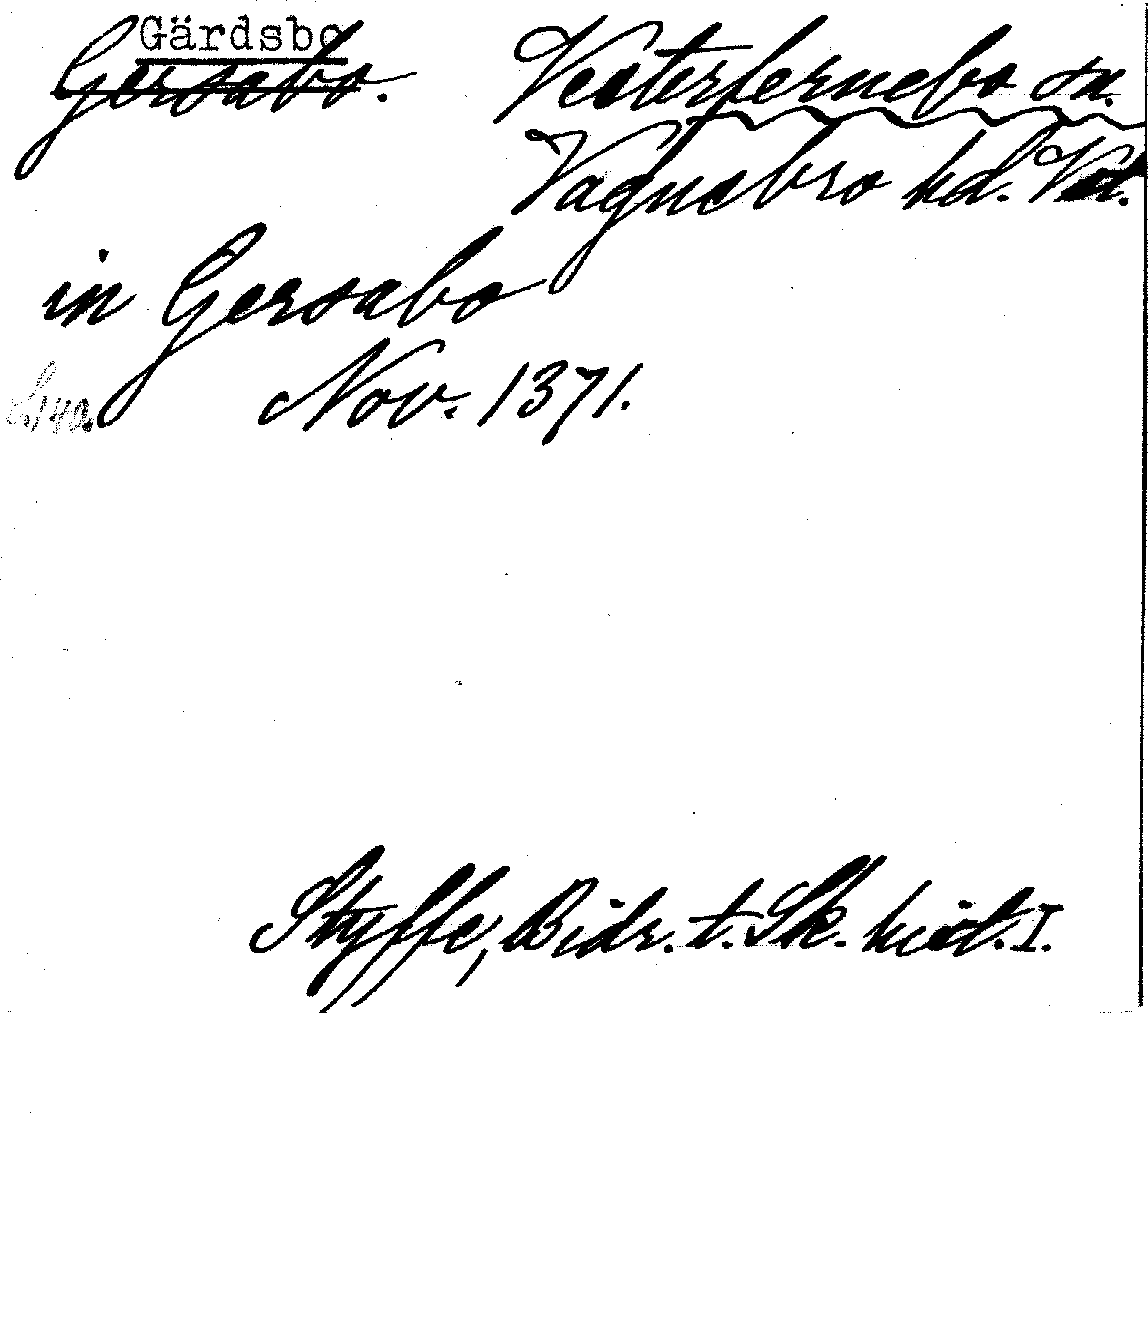 Gärdsbo
Gersabo. Vesterfernebo sn.
Vagnsbro hd. Vstm.
in Gersabo
Nov. 1371.
Styffe, Bidr. t. Sk. hist. I.